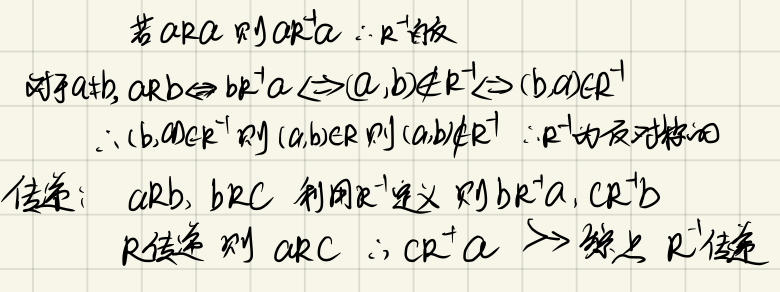 若aRa 则aR⁻¹a ∴R⁻¹自反
对于a≠b, aRb⇔bR⁻¹a⇔(a,b)∉R⁻¹⇔(b,a)∈R⁻¹
∴(b,a)∈R⁻¹ 则(a,b)∈R 则(a,b)∉R⁻¹ ∴R⁻¹为反对称的
传递: aRb, bRC 利用R⁻¹定义 则bR⁻¹a, CR⁻¹b
R传递 则 aRC ∴CR⁻¹a ≻→综上 R⁻¹传递